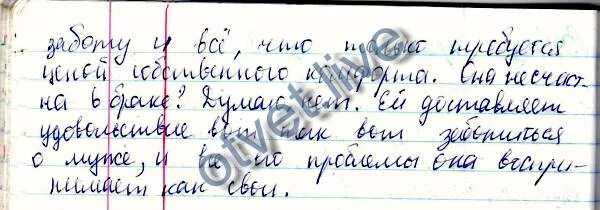 заботу и всё, что только требуется
ценой собственного комфорта. Она несчаст-
на в браке? Думаю нет. Ей доставляет
удовольствие вот так вот заботиться
о муже, и все его проблемы она воспри-
нимает как свои.
otvet.live